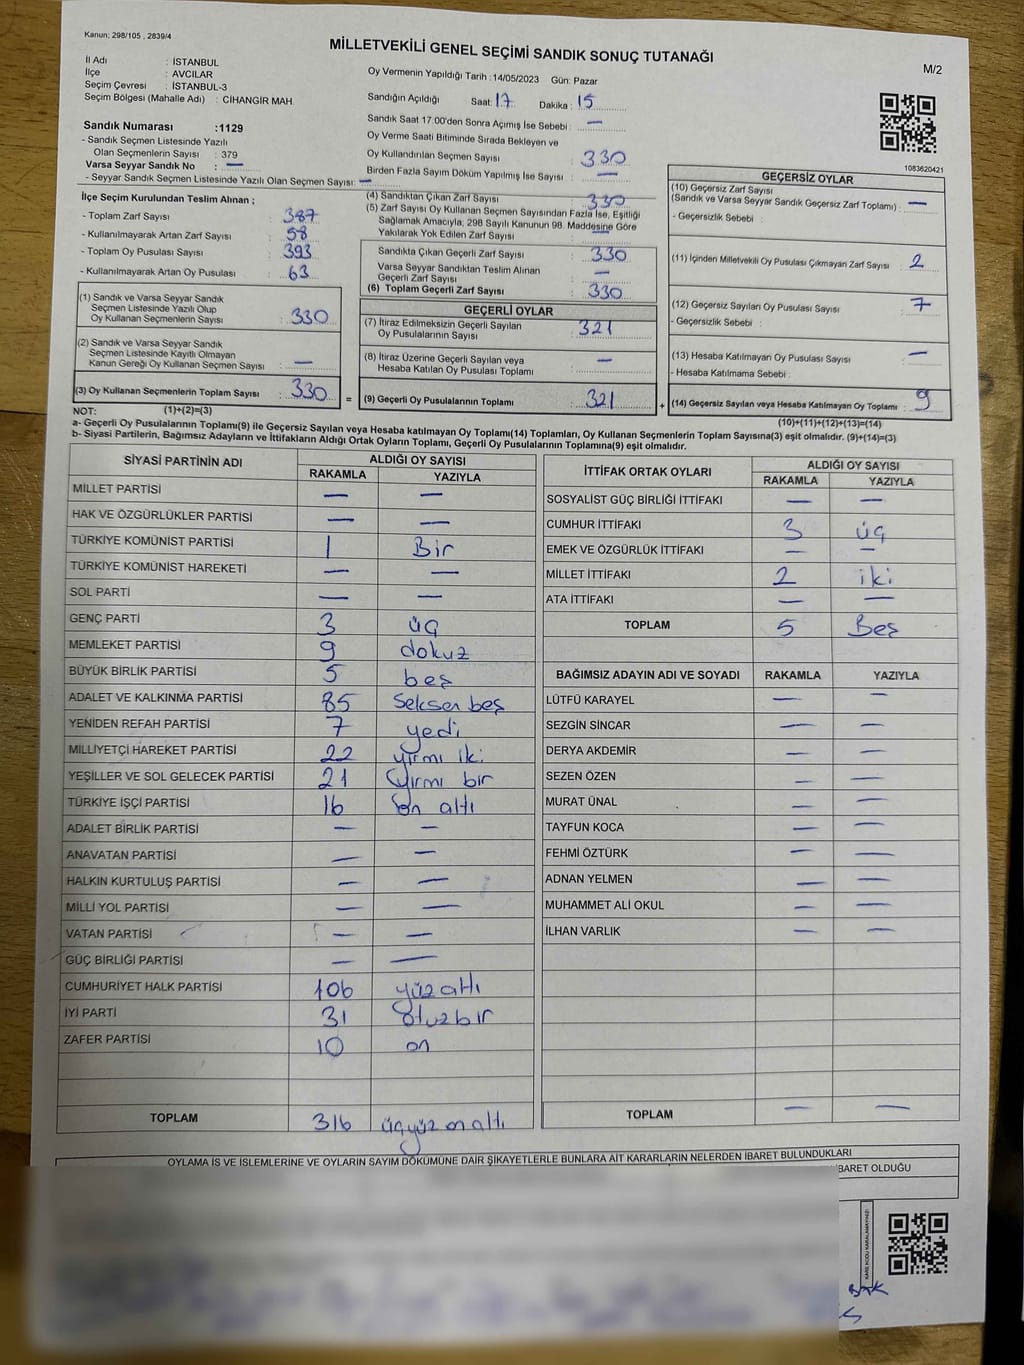 Kanun; 298/105 , 2839/4
MİLLETVEKİLİ GENEL SEÇİMİ SANDIK SONUÇ TUTANAĞI
M/2
İl Adı : İSTANBUL
İlçe : AVCILAR
Seçim Çevresi : İSTANBUL-3
Seçim Bölgesi (Mahalle Adı) : CİHANGİR MAH.
Oy Vermenin Yapıldığı Tarih :14/05/2023 Gün: Pazar
Sandığın Açıldığı Saat: 17 Dakika : 15
Sandık Saat 17:00'den Sonra Açımış İse Sebebi : —
Oy Verme Saati Bitiminde Sırada Bekleyen ve
Oy Kullandırılan Seçmen Sayısı : 330
Birden Fazla Sayım Döküm Yapılmış İse Sayısı : —
Sandık Numarası :1129
- Sandık Seçmen Listesinde Yazılı
Olan Seçmenlerin Sayısı : 379
Varsa Seyyar Sandık No : —
- Seyyar Sandık Seçmen Listesinde Yazılı Olan Seçmen Sayısı: —
1083620421
İlçe Seçim Kurulundan Teslim Alınan ;
- Toplam Zarf Sayısı : 387
- Kullanılmayarak Artan Zarf Sayısı : 58
- Toplam Oy Pusulası Sayısı : 393
- Kullanılmayarak Artan Oy Pusulası : 63
(1) Sandık ve Varsa Seyyar Sandık
Seçmen Listesinde Yazılı Olup
Oy Kullanan Seçmenlerin Sayısı : 330
(2) Sandık ve Varsa Seyyar Sandık
Seçmen Listesinde Kayıtlı Olmayan
Kanun Gereği Oy Kullanan Seçmen Sayısı : —
(3) Oy Kullanan Seçmenlerin Toplam Sayısı : 330
(4) Sandıktan Çıkan Zarf Sayısı : 330
(5) Zarf Sayısı Oy Kullanan Seçmen Sayısından Fazla İse, Eşitliği
Sağlamak Amacıyla, 298 Sayılı Kanunun 98. Maddesine Göre
Yakılarak Yok Edilen Zarf Sayısı : —
Sandıkta Çıkan Geçerli Zarf Sayısı : 330
Varsa Seyyar Sandıktan Teslim Alınan
Geçerli Zarf Sayısı : —
(6) Toplam Geçerli Zarf Sayısı : 330
GEÇERLİ OYLAR
(7) İtiraz Edilmeksizin Geçerli Sayılan
Oy Pusulalarının Sayısı : 321
(8) İtiraz Üzerine Geçerli Sayılan veya
Hesaba Katılan Oy Pusulası Toplamı : —
= (9) Geçerli Oy Pusulalarının Toplamı : 321
GEÇERSİZ OYLAR
(10) Geçersiz Zarf Sayısı
(Sandık ve Varsa Seyyar Sandık Geçersiz Zarf Toplamı) : —
- Geçersizlik Sebebi :
(11) İçinden Milletvekili Oy Pusulası Çıkmayan Zarf Sayısı : 2
(12) Geçersiz Sayılan Oy Pusulası Sayısı : 7
- Geçersizlik Sebebi :
(13) Hesaba Katılmayan Oy Pusulası Sayısı : —
- Hesaba Katılmama Sebebi :
+ (14) Geçersiz Sayılan veya Hesaba Katılmayan Oy Toplamı : 9
NOT: (1)+(2)=(3) (10)+(11)+(12)+(13)=(14)
a- Geçerli Oy Pusulalarının Toplamı(9) ile Geçersiz Sayılan veya Hesaba katılmayan Oy Toplamı(14) Toplamları, Oy Kullanan Seçmenlerin Toplam Sayısına(3) eşit olmalıdır. (9)+(14)=(3)
b- Siyasi Partilerin, Bağımsız Adayların ve İttifakların Aldığı Ortak Oyların Toplamı, Geçerli Oy Pusulalarının Toplamına(9) eşit olmalıdır.
SİYASİ PARTİNİN ADI ALDIĞI OY SAYISI
RAKAMLA YAZIYLA
MİLLET PARTİSİ — —
HAK VE ÖZGÜRLÜKLER PARTİSİ — —
TÜRKİYE KOMÜNİST PARTİSİ 1 Bir
TÜRKİYE KOMÜNİST HAREKETİ — —
SOL PARTİ — —
GENÇ PARTİ 3 üç
MEMLEKET PARTİSİ 9 dokuz
BÜYÜK BİRLİK PARTİSİ 5 beş
ADALET VE KALKINMA PARTİSİ 85 Seksen beş
YENİDEN REFAH PARTİSİ 7 yedi
MİLLİYETÇİ HAREKET PARTİSİ 22 yirmi iki
YEŞİLLER VE SOL GELECEK PARTİSİ 21 yirmi bir
TÜRKİYE İŞÇİ PARTİSİ 16 on altı
ADALET BİRLİK PARTİSİ — —
ANAVATAN PARTİSİ — —
HALKIN KURTULUŞ PARTİSİ — —
MİLLİ YOL PARTİSİ — —
VATAN PARTİSİ — —
GÜÇ BİRLİĞİ PARTİSİ — —
CUMHURİYET HALK PARTİSİ 106 yüz altı
İYİ PARTİ 31 otuz bir
ZAFER PARTİSİ 10 on
TOPLAM 316 üçyüz on altı
İTTİFAK ORTAK OYLARI ALDIĞI OY SAYISI
RAKAMLA YAZIYLA
SOSYALİST GÜÇ BİRLİĞİ İTTİFAKI — —
CUMHUR İTTİFAKI 3 üç
EMEK VE ÖZGÜRLÜK İTTİFAKI — —
MİLLET İTTİFAKI 2 iki
ATA İTTİFAKI — —
TOPLAM 5 Beş
BAĞIMSIZ ADAYIN ADI VE SOYADI RAKAMLA YAZIYLA
LÜTFÜ KARAYEL — —
SEZGİN SİNCAR — —
DERYA AKDEMİR — —
SEZEN ÖZEN — —
MURAT ÜNAL — —
TAYFUN KOCA — —
FEHMİ ÖZTÜRK — —
ADNAN YELMEN — —
MUHAMMET ALİ OKUL — —
İLHAN VARLIK — —
TOPLAM — —
OYLAMA İŞ VE İŞLEMLERİNE VE OYLARIN SAYIM DÖKÜMÜNE DAİR ŞİKAYETLERLE BUNLARA AİT KARARLARIN NELERDEN İBARET BULUNDUKLARI
İBARET OLDUĞU
KARE KODU KARALAMAYINIZ!